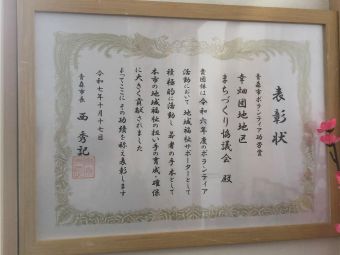 表彰状
青森市ボランティア功労賞
幸畑団地地区
まちづくり協議会 殿
貴団体は令和六年度のボランティア
活動において地域福祉サポーターとして
積極的に活動し若者の手本として
本市の地域福祉の担い手の育成・確保
に大きく貢献されました
よってここにその功績を称え表彰します
令和七年十月十七日
青森市長 西秀記